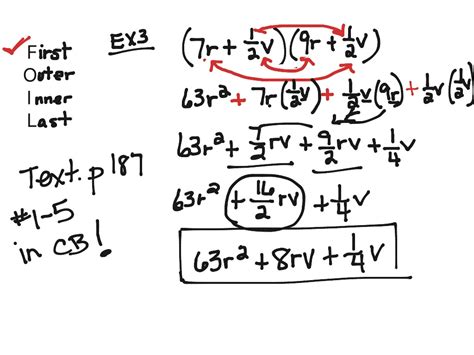 ✓ First
Outer
Inner
Last
EX3
(7r + 1/2v)(9r + 1/2v)
63r² + 7r(1/2v) + 1/2v(9r) + 1/2v(1/2v)
63r² + 7/2rv + 9/2rv + 1/4v
63r² + 16/2rv + 1/4v
63r² + 8rv + 1/4v
Text. p 187
#1-5
in CB!